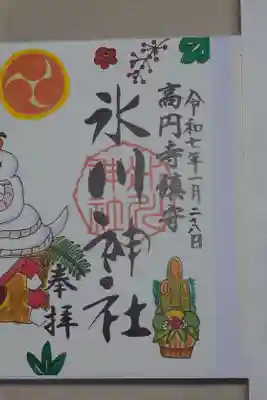 令和七年一月二十八日
高円寺鎮守
氷川神社
奉拝